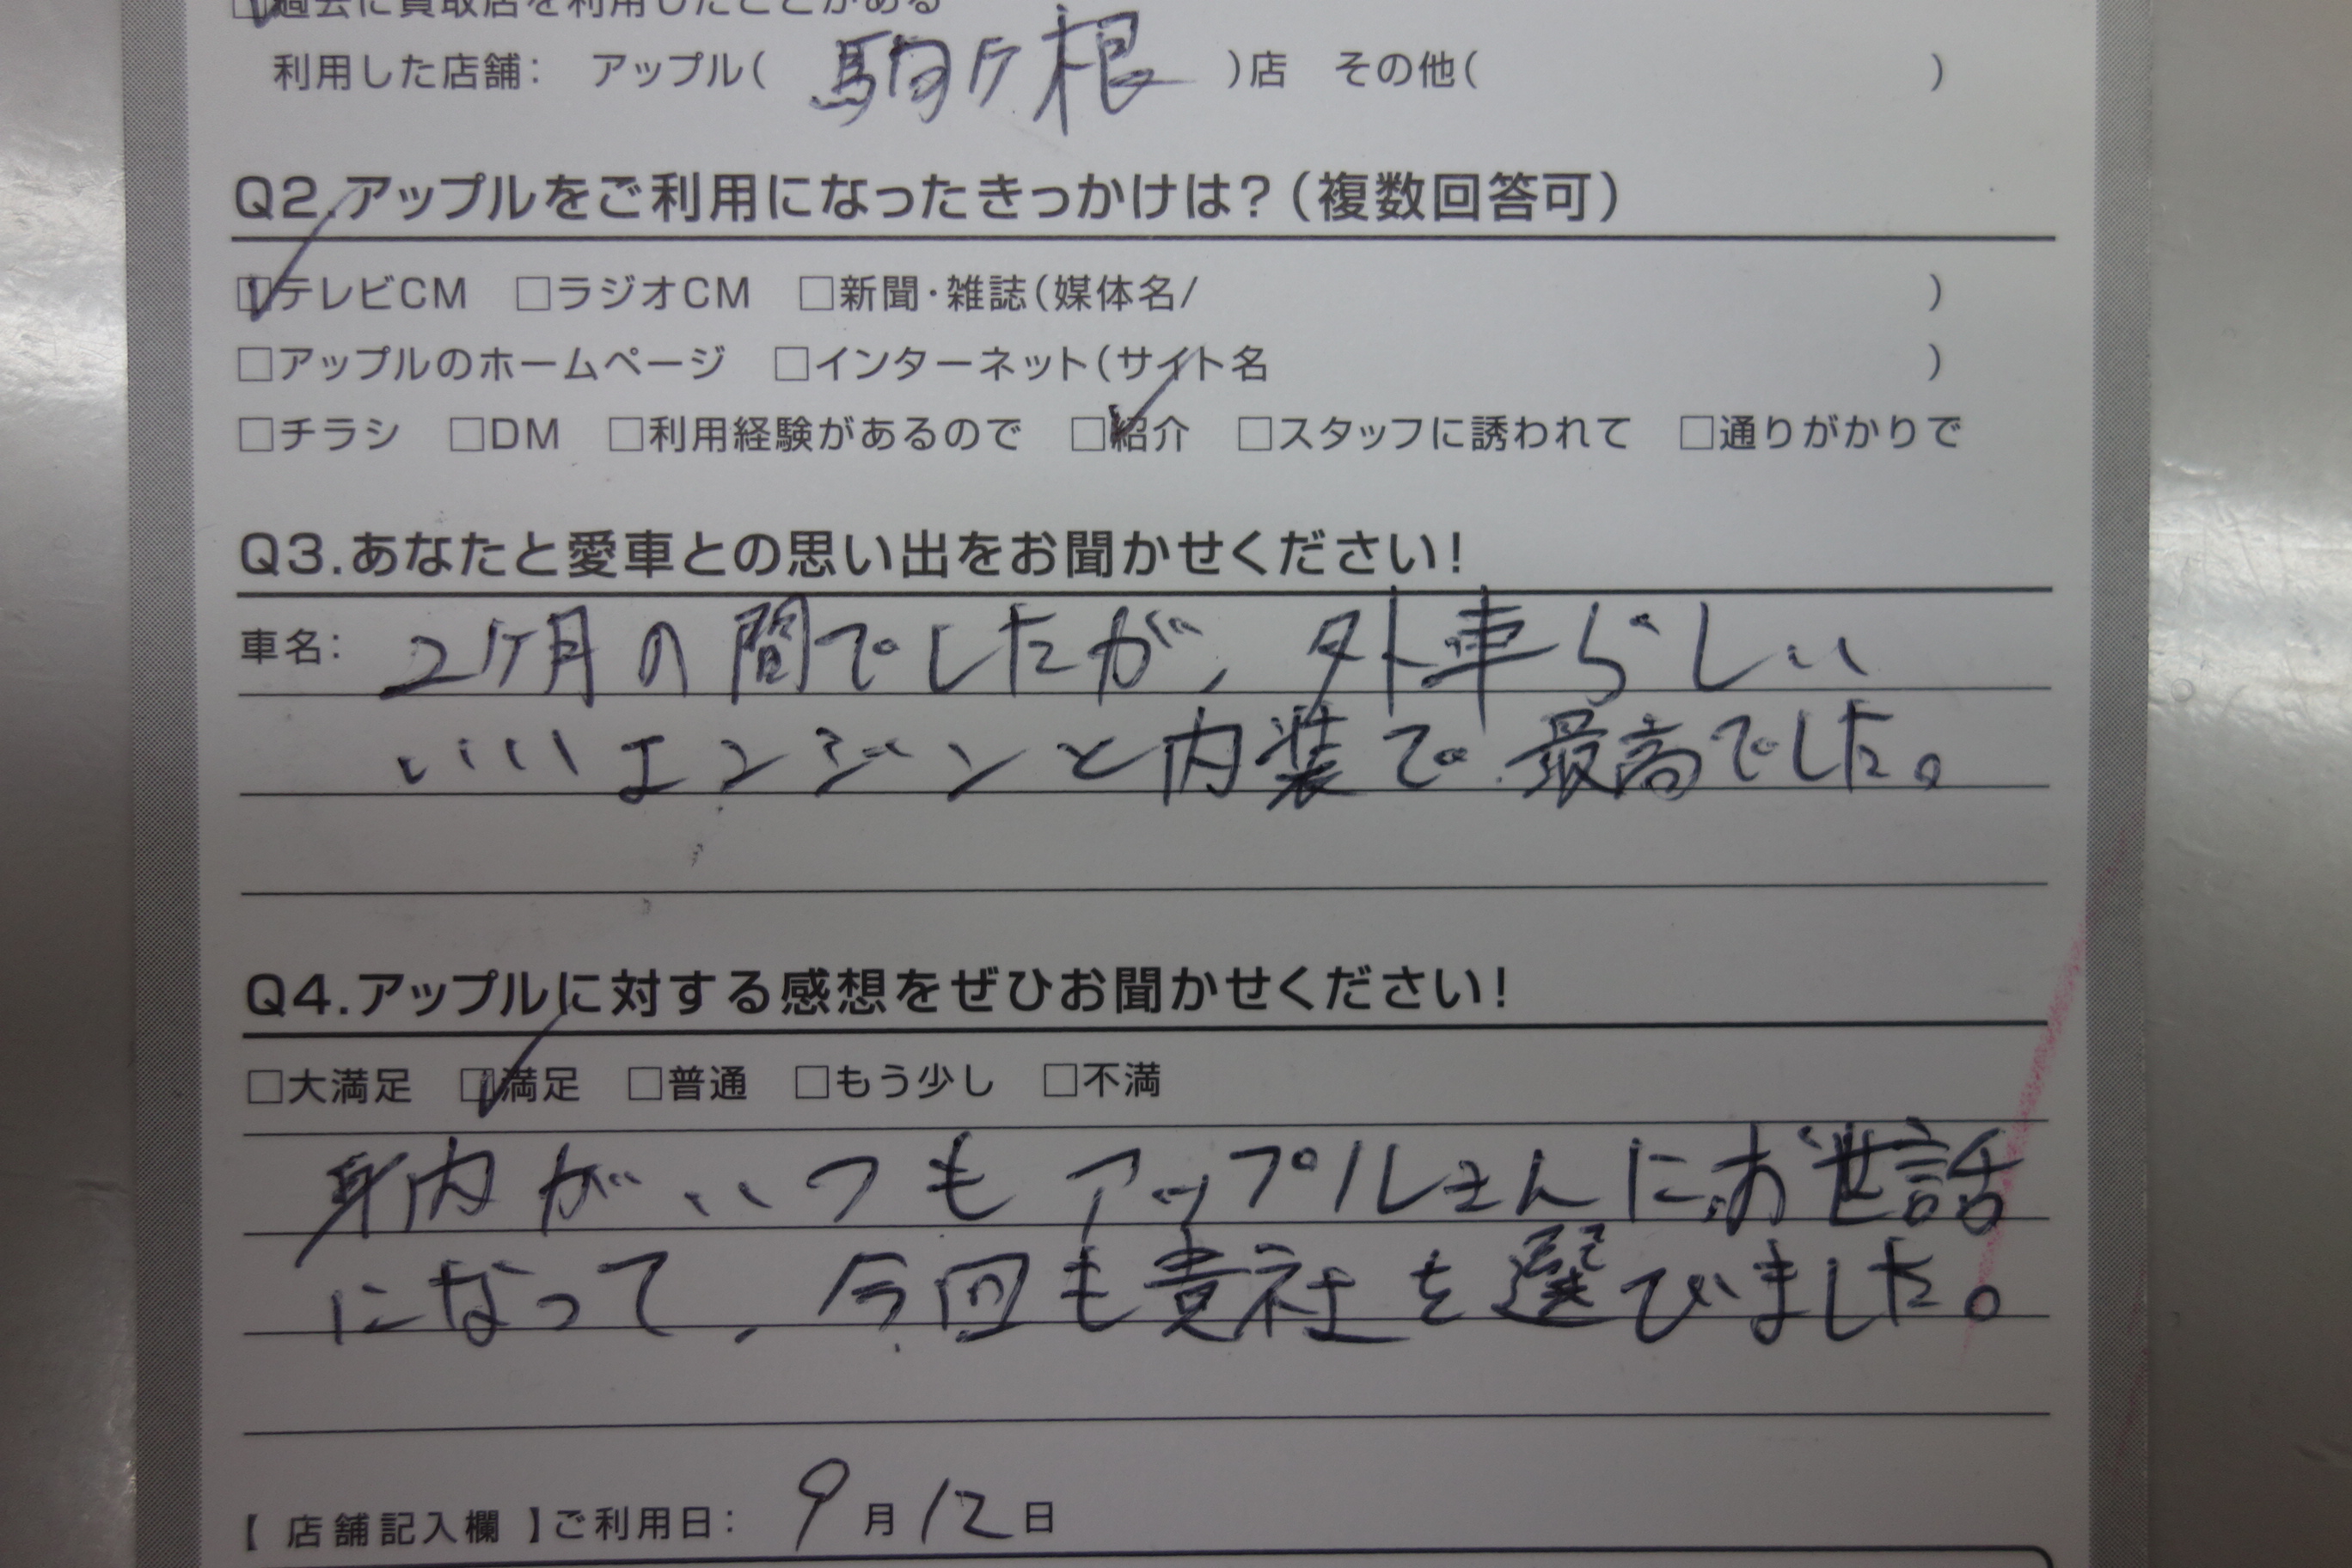 ☑過去に買取店を利用したことがある
利用した店舗： アップル（ 駒ヶ根 ）店 その他（ ）
Q2.アップルをご利用になったきっかけは？（複数回答可）
☑テレビCM □ラジオCM □新聞・雑誌（媒体名/ ）
□アップルのホームページ □インターネット（サイト名 ）
□チラシ □DM □利用経験があるので ☑紹介 □スタッフに誘われて □通りがかりで
Q3.あなたと愛車との思い出をお聞かせください！
車名： 2ヶ月の間でしたが、外車らしい
いいエンジンと内装で最高でした。
Q4.アップルに対する感想をぜひお聞かせください！
□大満足 ☑満足 □普通 □もう少し □不満
身内がいつもアップルさんにお世話
になって、今回も貴社を選びました。
【 店舗記入欄 】ご利用日： 9月12日